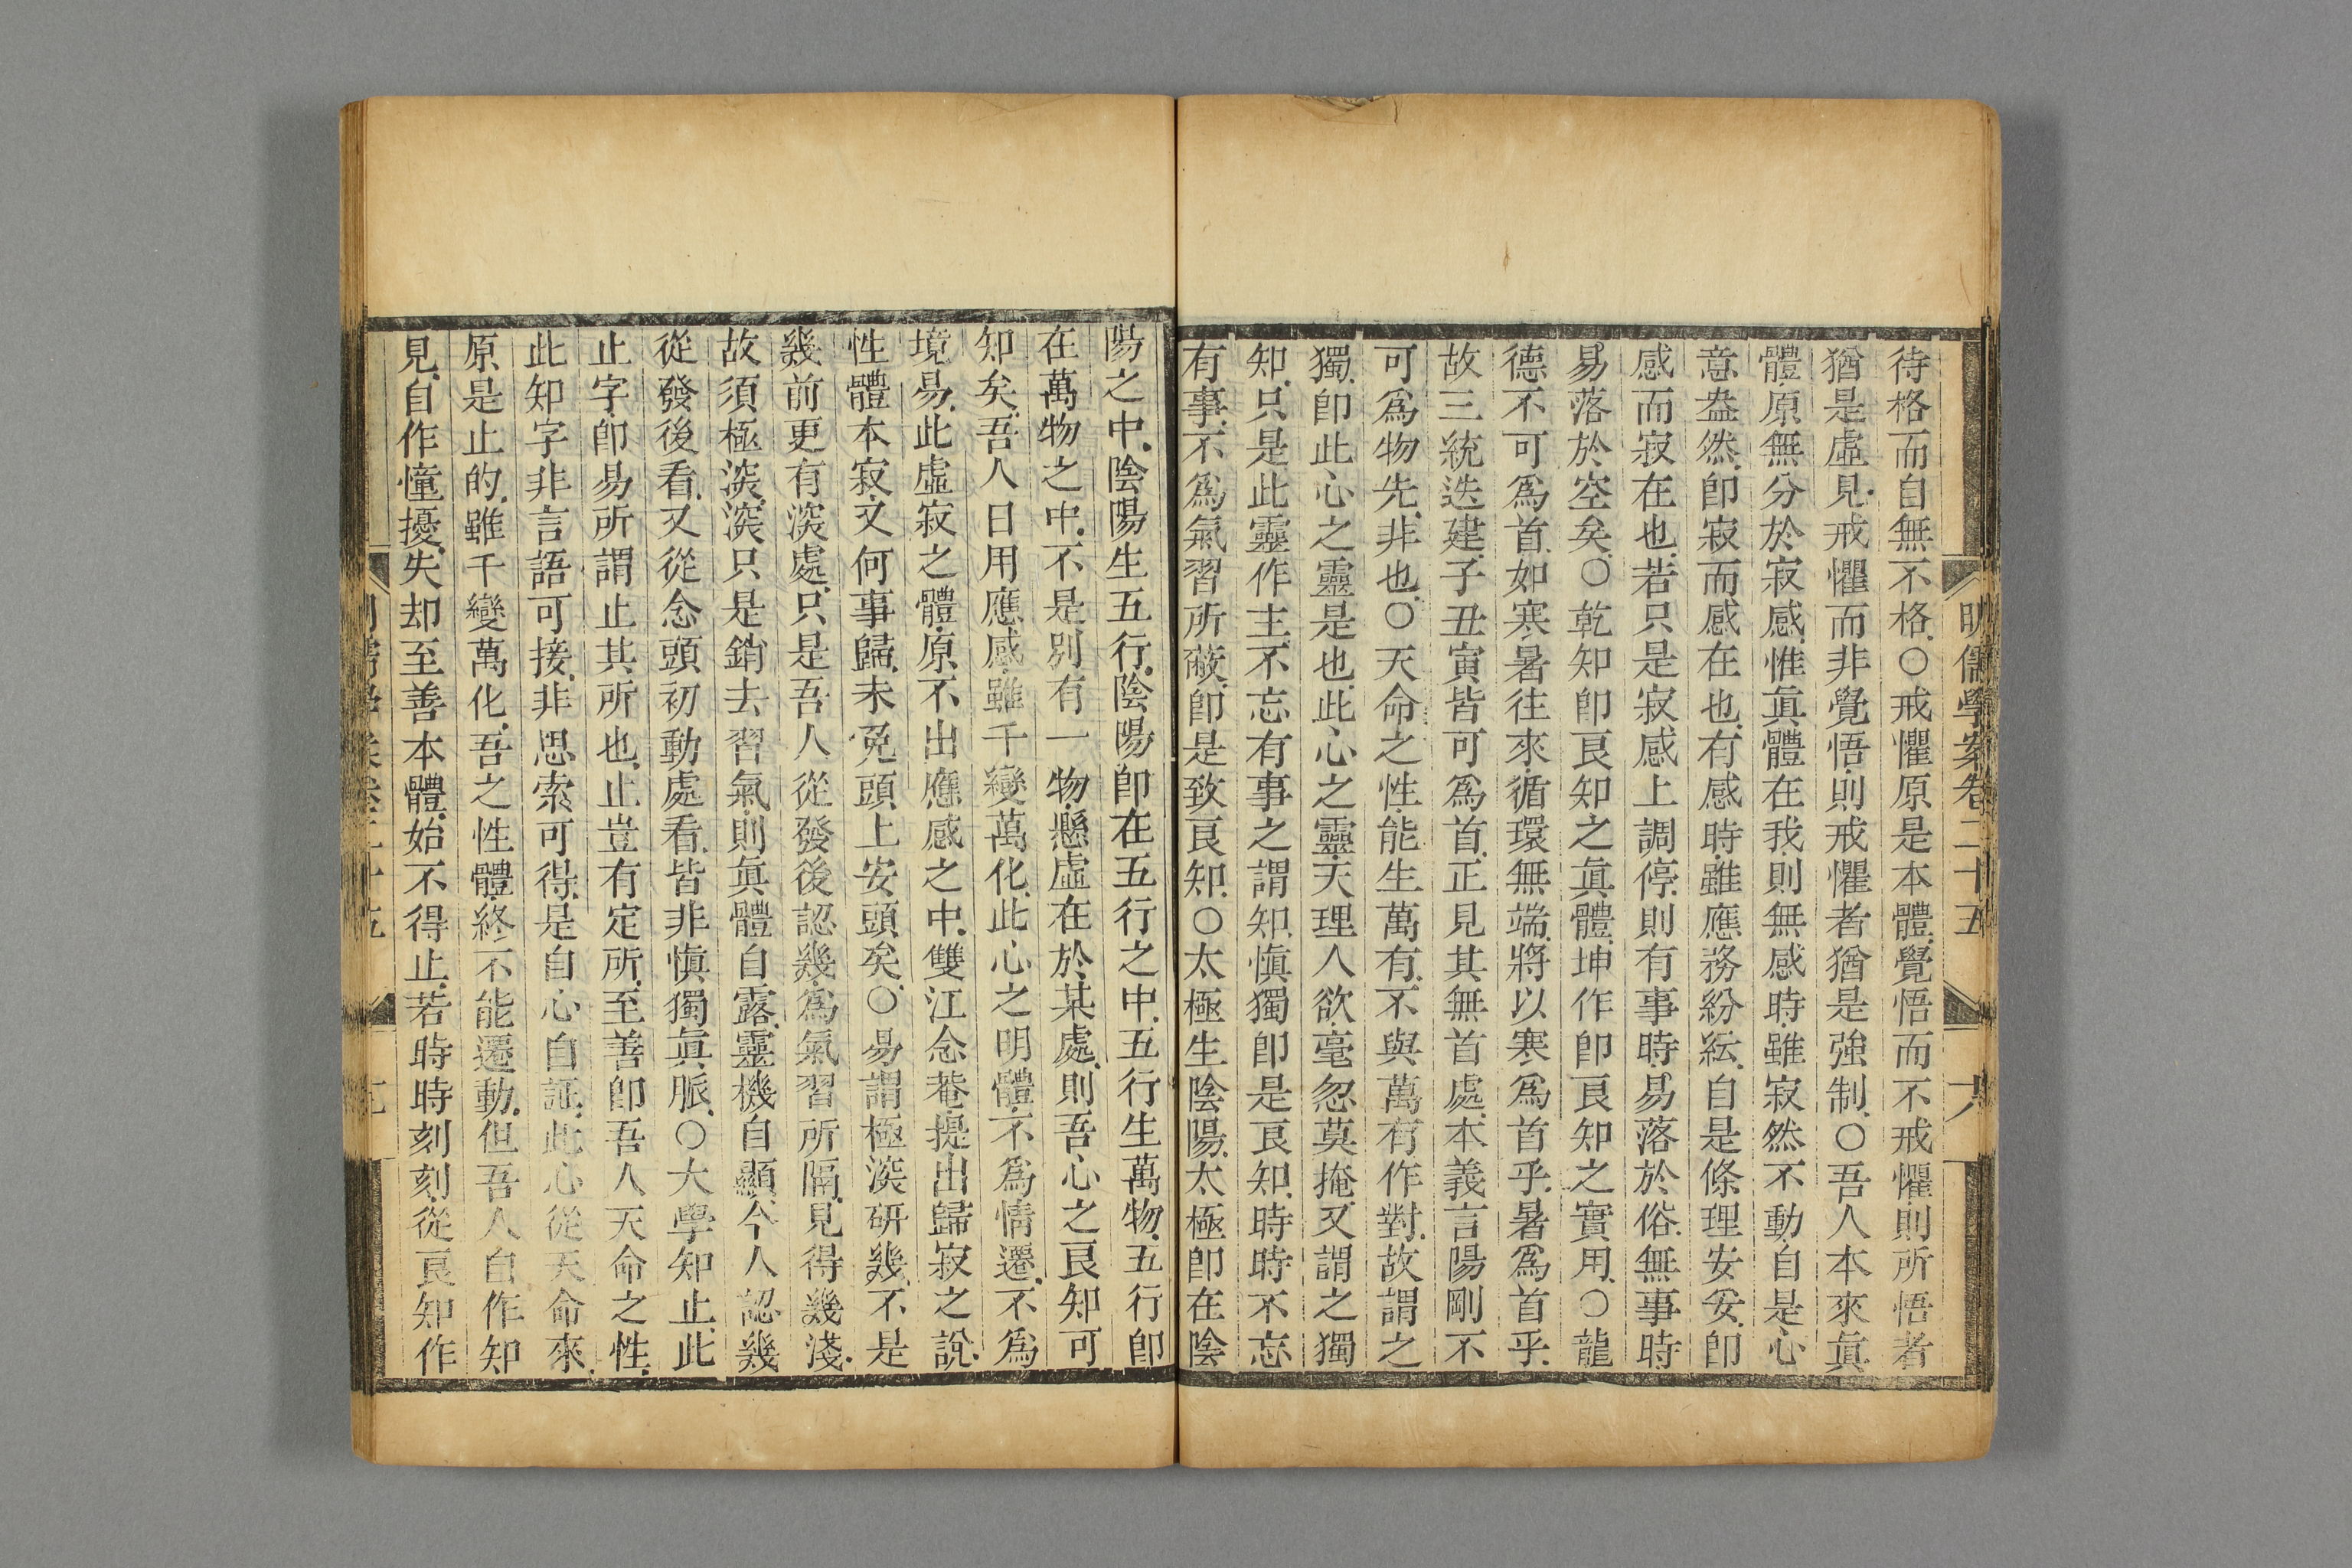 明儒學案卷二十五
六
待格而自無不格.○戒懼原是本體.覺悟而不戒懼.則所悟者
猶是虛見.戒懼而非覺悟.則戒懼者猶是強制.○吾人本來眞
體.原無分於寂感.惟眞體在我.則無感時.雖寂然不動.自是心
意盎然.卽寂而感在也.有感時.雖應務紛紜.自是條理安安.卽
感而寂在也.若只是寂感上調停.則有事時.易落於俗.無事時.
易落於空矣.○乾知卽良知之眞體.坤作卽良知之實用.○龍
德不可爲首.如寒暑往來.循環無端.將以寒爲首乎.暑爲首乎.
故三統迭建.子丑寅皆可爲首.正見其無首處.本義言陽剛不
可爲物先.非也.○天命之性.能生萬有.不與萬有作對.故謂之
獨.卽此心之靈是也.此心之靈.天理人欲.毫忽莫掩.又謂之獨
知.只是此靈作主.不忘有事之謂知.愼獨卽是良知.時時不忘
有事.不爲氣習所蔽.卽是致良知.○太極生陰陽.太極卽在陰
陽之中.陰陽生五行.陰陽卽在五行之中.五行生萬物.五行卽
在萬物之中.不是別有一物.懸虛在於某處.則吾心之良知可
知矣.吾人日用應感.雖千變萬化.此心之明體.不爲情遷.不爲
境易.此虛寂之體.原不出應感之中.雙江念菴提出歸寂之說.
性體本寂.又何事歸.未免頭上安頭矣.○易謂極深研幾.不是
幾前更有深處.只是吾人從發後認幾.爲氣習所隔.見得幾淺.
故須極深.深只是銷去習氣.則眞體自露.靈機自顯.今人認幾
從發後看.又從念頭初動處看.皆非愼獨眞脈.○大學知止.此
止字.卽易所謂止其所也.止豈有定所.至善卽吾人天命之性.
此知字非言語可接.非思索可得.是自心自証.此心從天命來.
原是止的.雖千變萬化.吾之性體.終不能遷動.但吾人自作知
見.自作憧擾.失却至善本體.始不得止.若時時刻刻.從良知作